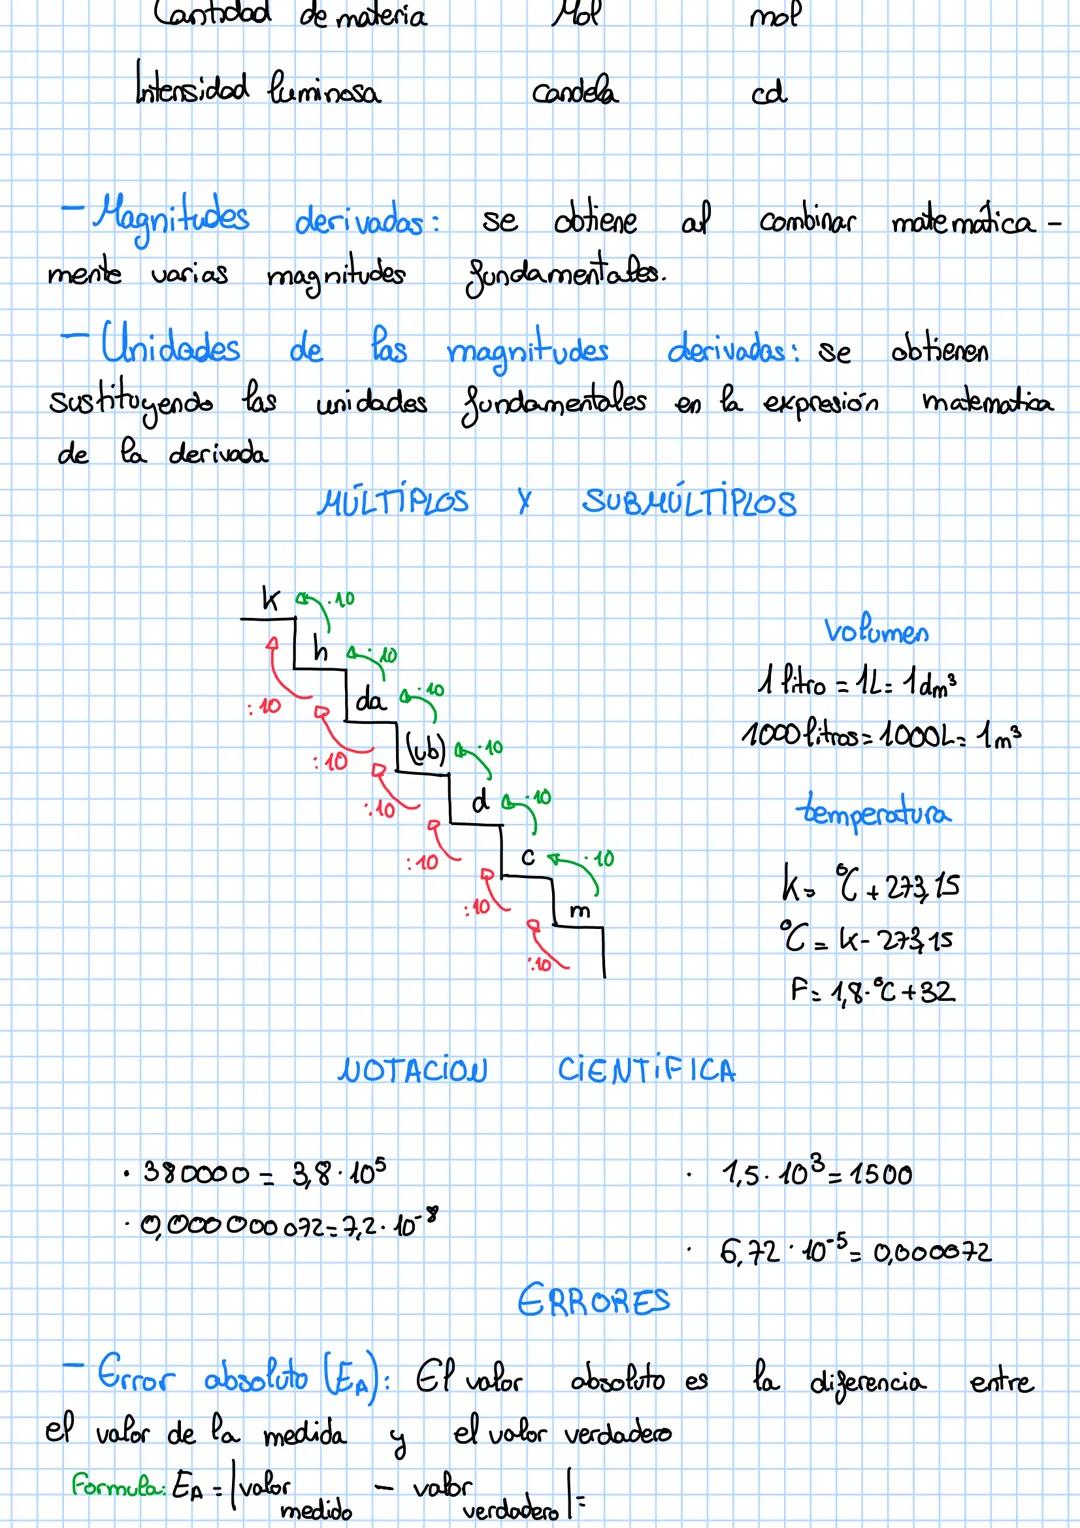 Cantidad de materia Mol mol
Intensidad luminosa candela cd
- Magnitudes derivadas: se obtiene al combinar matemática-
mente varias magnitudes fundamentales.
- Unidades de las magnitudes derivadas: se obtienen
sustituyendo las unidades fundamentales en la expresión matematica
de la derivada
MÚLTIPLOS Y SUBMÚLTIPLOS
k ·10
h ·10
:10 da ·10
:10 (ub) ·10
:10 d ·10
:10 c ·10
:10 m
:10
volumen
1 litro = 1L = 1dm³
1000 litros = 1000L = 1m³
temperatura
k = °C + 273,15
°C = k - 273,15
F = 1,8·°C + 32
NOTACION CIENTÍFICA
· 380000 = 3,8·10⁵
· 0,000000072 = 7,2·10⁻⁸
· 1,5·10³ = 1500
· 6,72·10⁻⁵ = 0,000072
ERRORES
- Error absoluto (EA): El valor absoluto es la diferencia entre
el valor de la medida y el valor verdadero
Formula: EA = |valor medido - valor verdadero| =